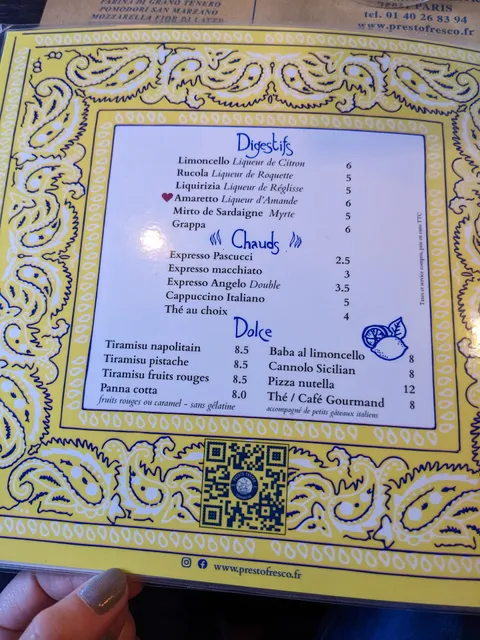 FARINA DI GRANO TENERO
POMODORI SAN MARZANO
MOZZARELLA FIOR DI LATTE
PARIS
tel. 01 40 26 83 94
www.prestofresco.fr
Digestifs
Limoncello Liqueur de Citron 6
Rucola Liqueur de Roquette 5
Liquirizia Liqueur de Réglisse 5
Amaretto Liqueur d'Amande 6
Mirto de Sardaigne Myrte 5
Grappa 6
Chauds
Expresso Pascucci 2.5
Expresso macchiato 3
Expresso Angelo Double 3.5
Cappuccino Italiano 5
Thé au choix 4
Taxes et service compris, prix en euro TTC
Dolce
Tiramisu napolitain 8.5
Tiramisu pistache 8.5
Tiramisu fruits rouges 8.5
Panna cotta 8.0
fruits rouges ou caramel - sans gélatine
Baba al limoncello 8
Cannolo Sicilian 8
Pizza nutella 12
Thé / Café Gourmand 8
accompagné de petits gâteaux italiens
www.prestofresco.fr